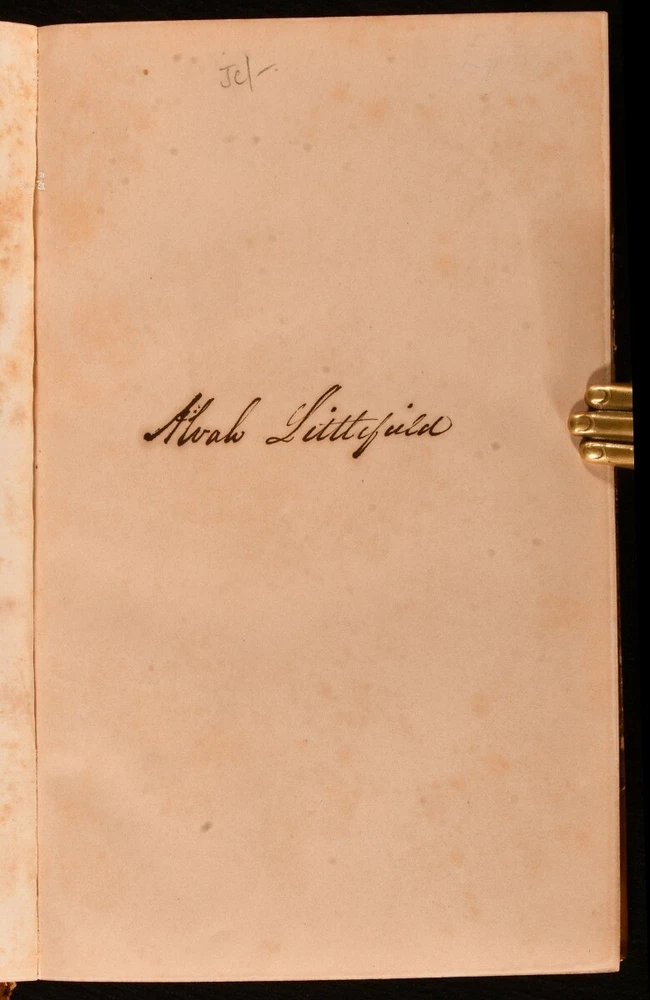 Jc/-.
Alvah Littlefield